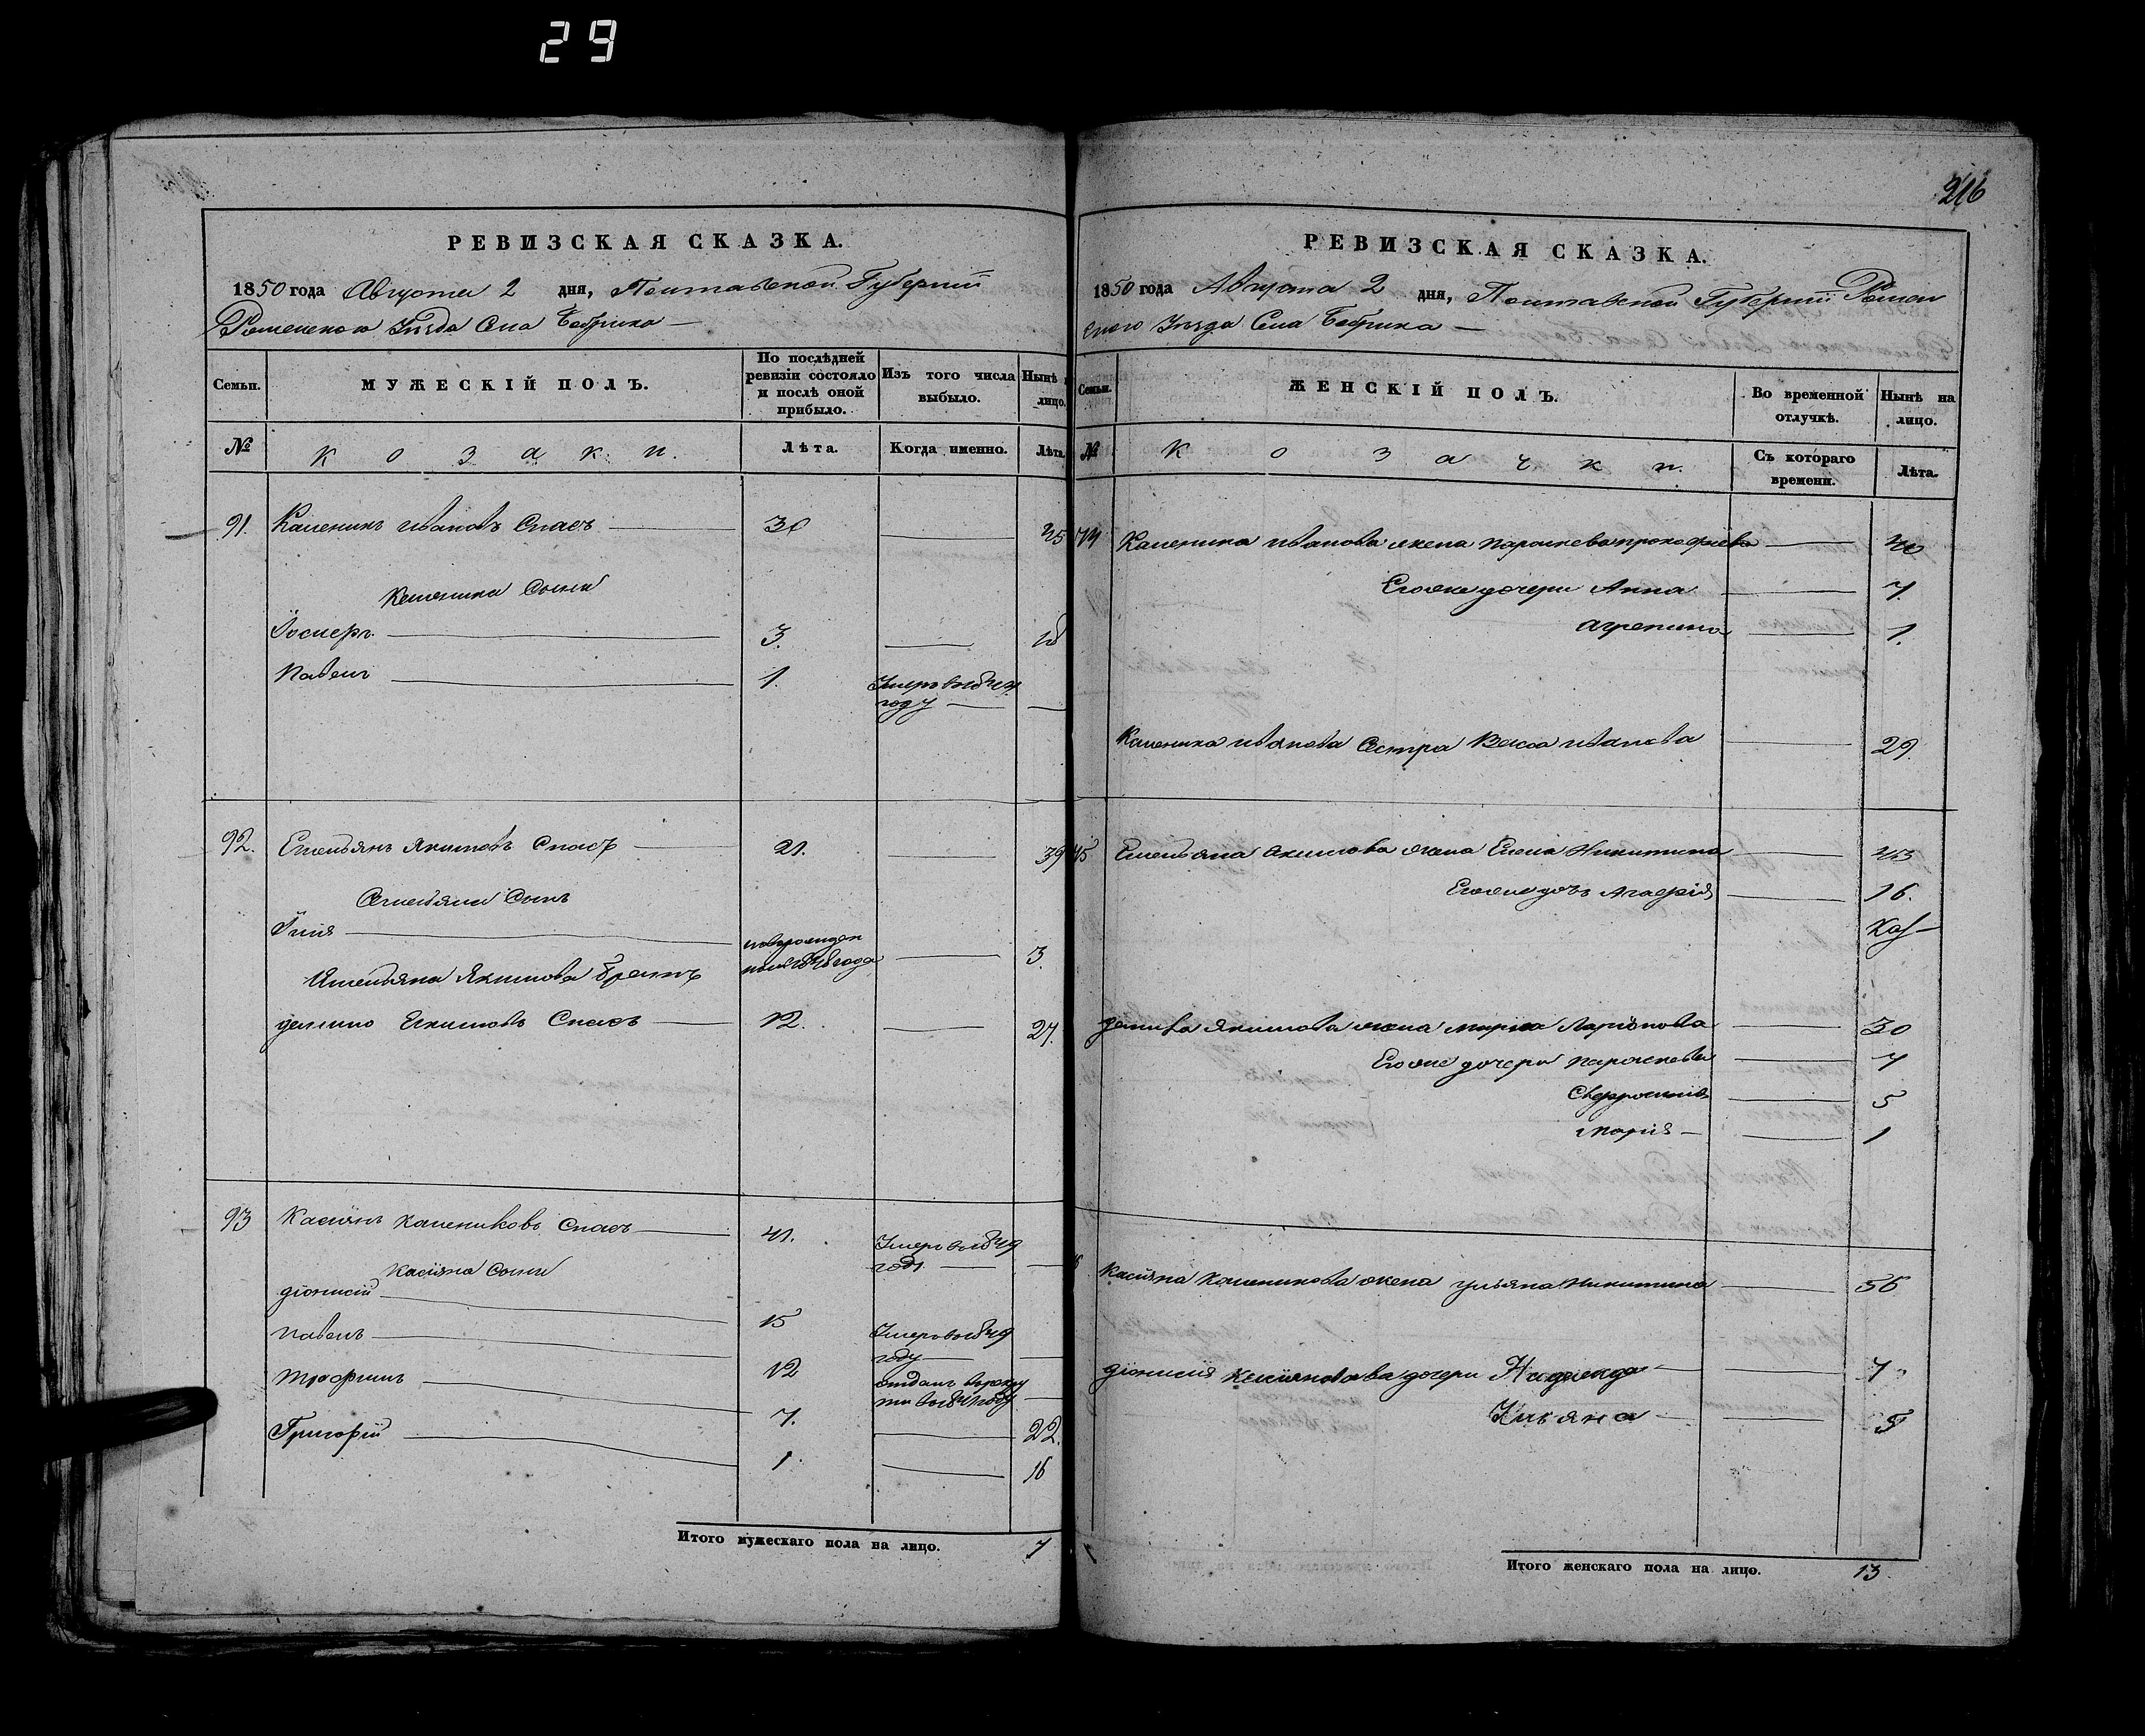 29
216
РЕВИЗСКАЯ СКАЗКА.
1850 года Августа 2 дня, Полтавской Губерніи
Роменского Уѣзда Села Бобрика
Семьи. МУЖЕСКІЙ ПОЛЪ. По послѣдней ревизіи состояло и послѣ оной прибыло. Изъ того числа выбыло. Нынѣ лицо.
№ Козаки. Лѣта. Когда именно. Лѣта.
91. Каленикъ Ивановъ Спасъ 30 45
Каленика Сыны
3. 18
Павелъ 1. Умеръ въ
году
92. Емельянъ Якимовъ Спасъ 21. 39
Емельяна Сынъ
Илія новорожден 3.
ный года
Емельяна Якимова братъ
Якимовъ Спасъ 12. 27.
93 Касіянъ Калениковъ Спасъ 41. Умеръ въ 1849
годѣ
Касіяна Сыны
Діонисій 15 Умеръ въ 1849
году
Павелъ 12 отданъ въ рекру
ты въ году
Трофимъ 7. 22.
Григорій 1. 16
Итого мужескаго пола на лицо. 7
РЕВИЗСКАЯ СКАЗКА.
1850 года Августа 2 дня, Полтавской Губерніи Ромен
ского Уѣзда Села Бобрика
Семьи. ЖЕНСКІЙ ПОЛЪ. Во временной отлучкѣ. Нынѣ на лицо.
№ Козачки. Съ котораго времени. Лѣта.
Каленика Иванова жена Параскева Прокофіева 40
Его же дочери Анна 7.
Агрепина 1.
Каленика Иванова Сестра Васса Иванова 29.
Емельяна Якимова жена Елена Никитина 43
Его же дочь Агафія 16.
Якимова жена Марфа Ларіонова 30
Его же дочери Параскева 7
Евфросинія 5
Марія 1
Касіяна Каленикова жена Ульяна Никитина 56
Діонисія Касіянова дочери Надежда 7
Ульяна 5
Итого женскаго пола на лицо. 13